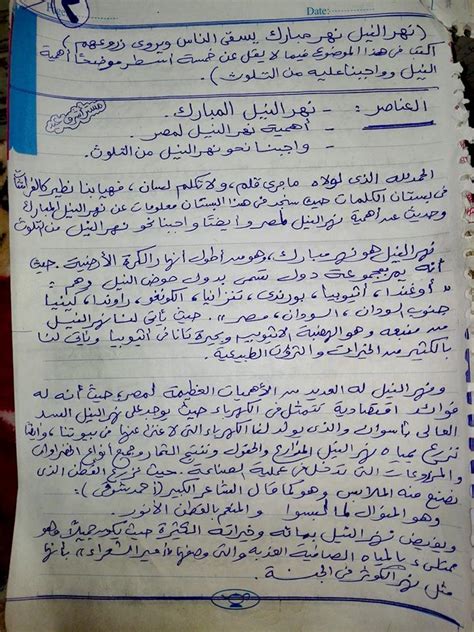 Date:
٢
( نهر النيل نهر مبارك يسقى الناس ويروى زروعهم )
أكتب فى هذا الموضوع فيما لا يقل عن خمسة أسطر موضحاً أهمية
النيل وواجبنا عليه من التلوث .
العناصر : - نهر النيل المبارك .
- أهمية نهر النيل لمصر .
- واجبنا نحو نهر النيل من التلوث .
الحمد لله الذى لولاه ما جرى قلم ، ولا تكلم لسان ، فهيا بنا نطير كالفراشات
فى بستان الكلمات حيث سنجد فى هذا البستان معلومات عن نهر النيل المبارك
وحديث عن أهمية نهر النيل لمصر وأيضاً واجبنا نحو نهر النيل من التلوث
نهر النيل هو نهر مبارك ، وهو من أطول أنهار الكرة الأرضية . حيث
أنه يمر بمجموعة دول تسمى بدول حوض النيل وهم :
" أوغندا ، أثيوبيا ، بورندى ، تنزانيا ، الكونغو ، راوندا ، كينيا
جنوب السودان ، السودان ، مصر " . حيث يأتى لنا نهر النيل
من منبعه وهو الهضبة الاثيوبيا وبحيرة تانا فى أثيوبيا ويأتى لنا
بالكثير من الخيرات والثروات الطبيعية .
ونهر النيل له العديد من الأهميات العظيمة لمصر ، حيث أنه له
فوائد اقتصادية تتمثل فى الكهرباء حيث يوجد على نهر النيل السد
العالى بأسوان والذى يولد لنا الكهرباء التى لا غنى عنها فى بيوتنا ، وأيضا
تزرع بمياه نهر النيل المزارع والحقول وتنتج الثمار وجميع أنواع الخضراوات
والمزروعات التى تدخل فى عملية الصناعة . حيث نزرع القطن الذى
نصنع منه الملابس وهو كما قال الشاعر الكبير ( أحمد شوقى ) :
وهو المنوال لما لبسوا والمنعم بالقطن الأنور .
ويفيض نهر النيل بمائه وخيراته الكثيرة حيث يكون جميلاً وهو
ممتلىء بالمياه الصافية العذبة والتى وصفها " أمير الشعراء " بأنها
مثل نهر الكوثر فى الجنة .